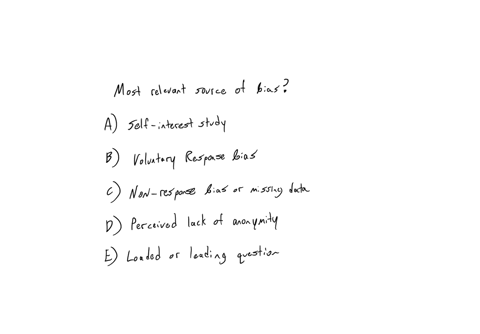 Most relevant source of bias?
A) Self-interest study
B) Voluntary Response bias
C) Non-response bias or missing data
D) Perceived lack of anonymity
E) Loaded or leading question